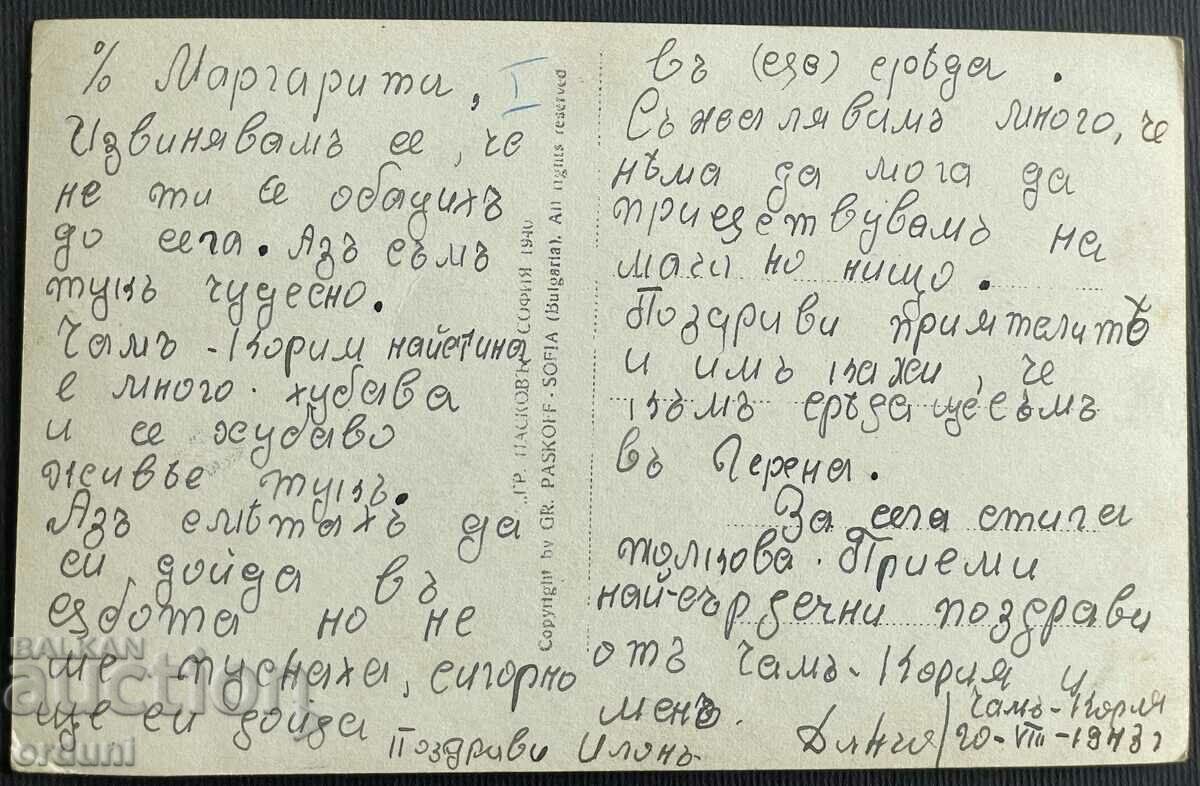 % Маргарита, I
Извинявамъ се, че
не ти се обадихъ
до сега. Азъ съмъ
тукъ чудесно.
Чамъ-Кория наистина
е много хубава
и се хубаво
живѣе тукъ.
Азъ смѣтахъ да
си дойда въ
сѫбота но не
ме пуснаха, сигорно
ще си дойда
въ срѣда.
Съжалявамъ много, че
нѣма да мога да
присѫствувамъ на
мача но нищо.
Поздариви приятелитѣ
и имъ кажи, че
къмъ срѣда ще съмъ
въ Герена.
За сега стига
толкова. Приеми
най-сърдечни поздрави
отъ Чамъ-Кория и
менъ.
Поздрави Илонъ
Чамъ-Кория
20-VIII-1943г
„ГР. ПАСКОВЪ" СОФИЯ 1940
Copyright by GR. PASKOFF - SOFIA (Bulgaria). All rights reserved
BALKAN
auction
orduni